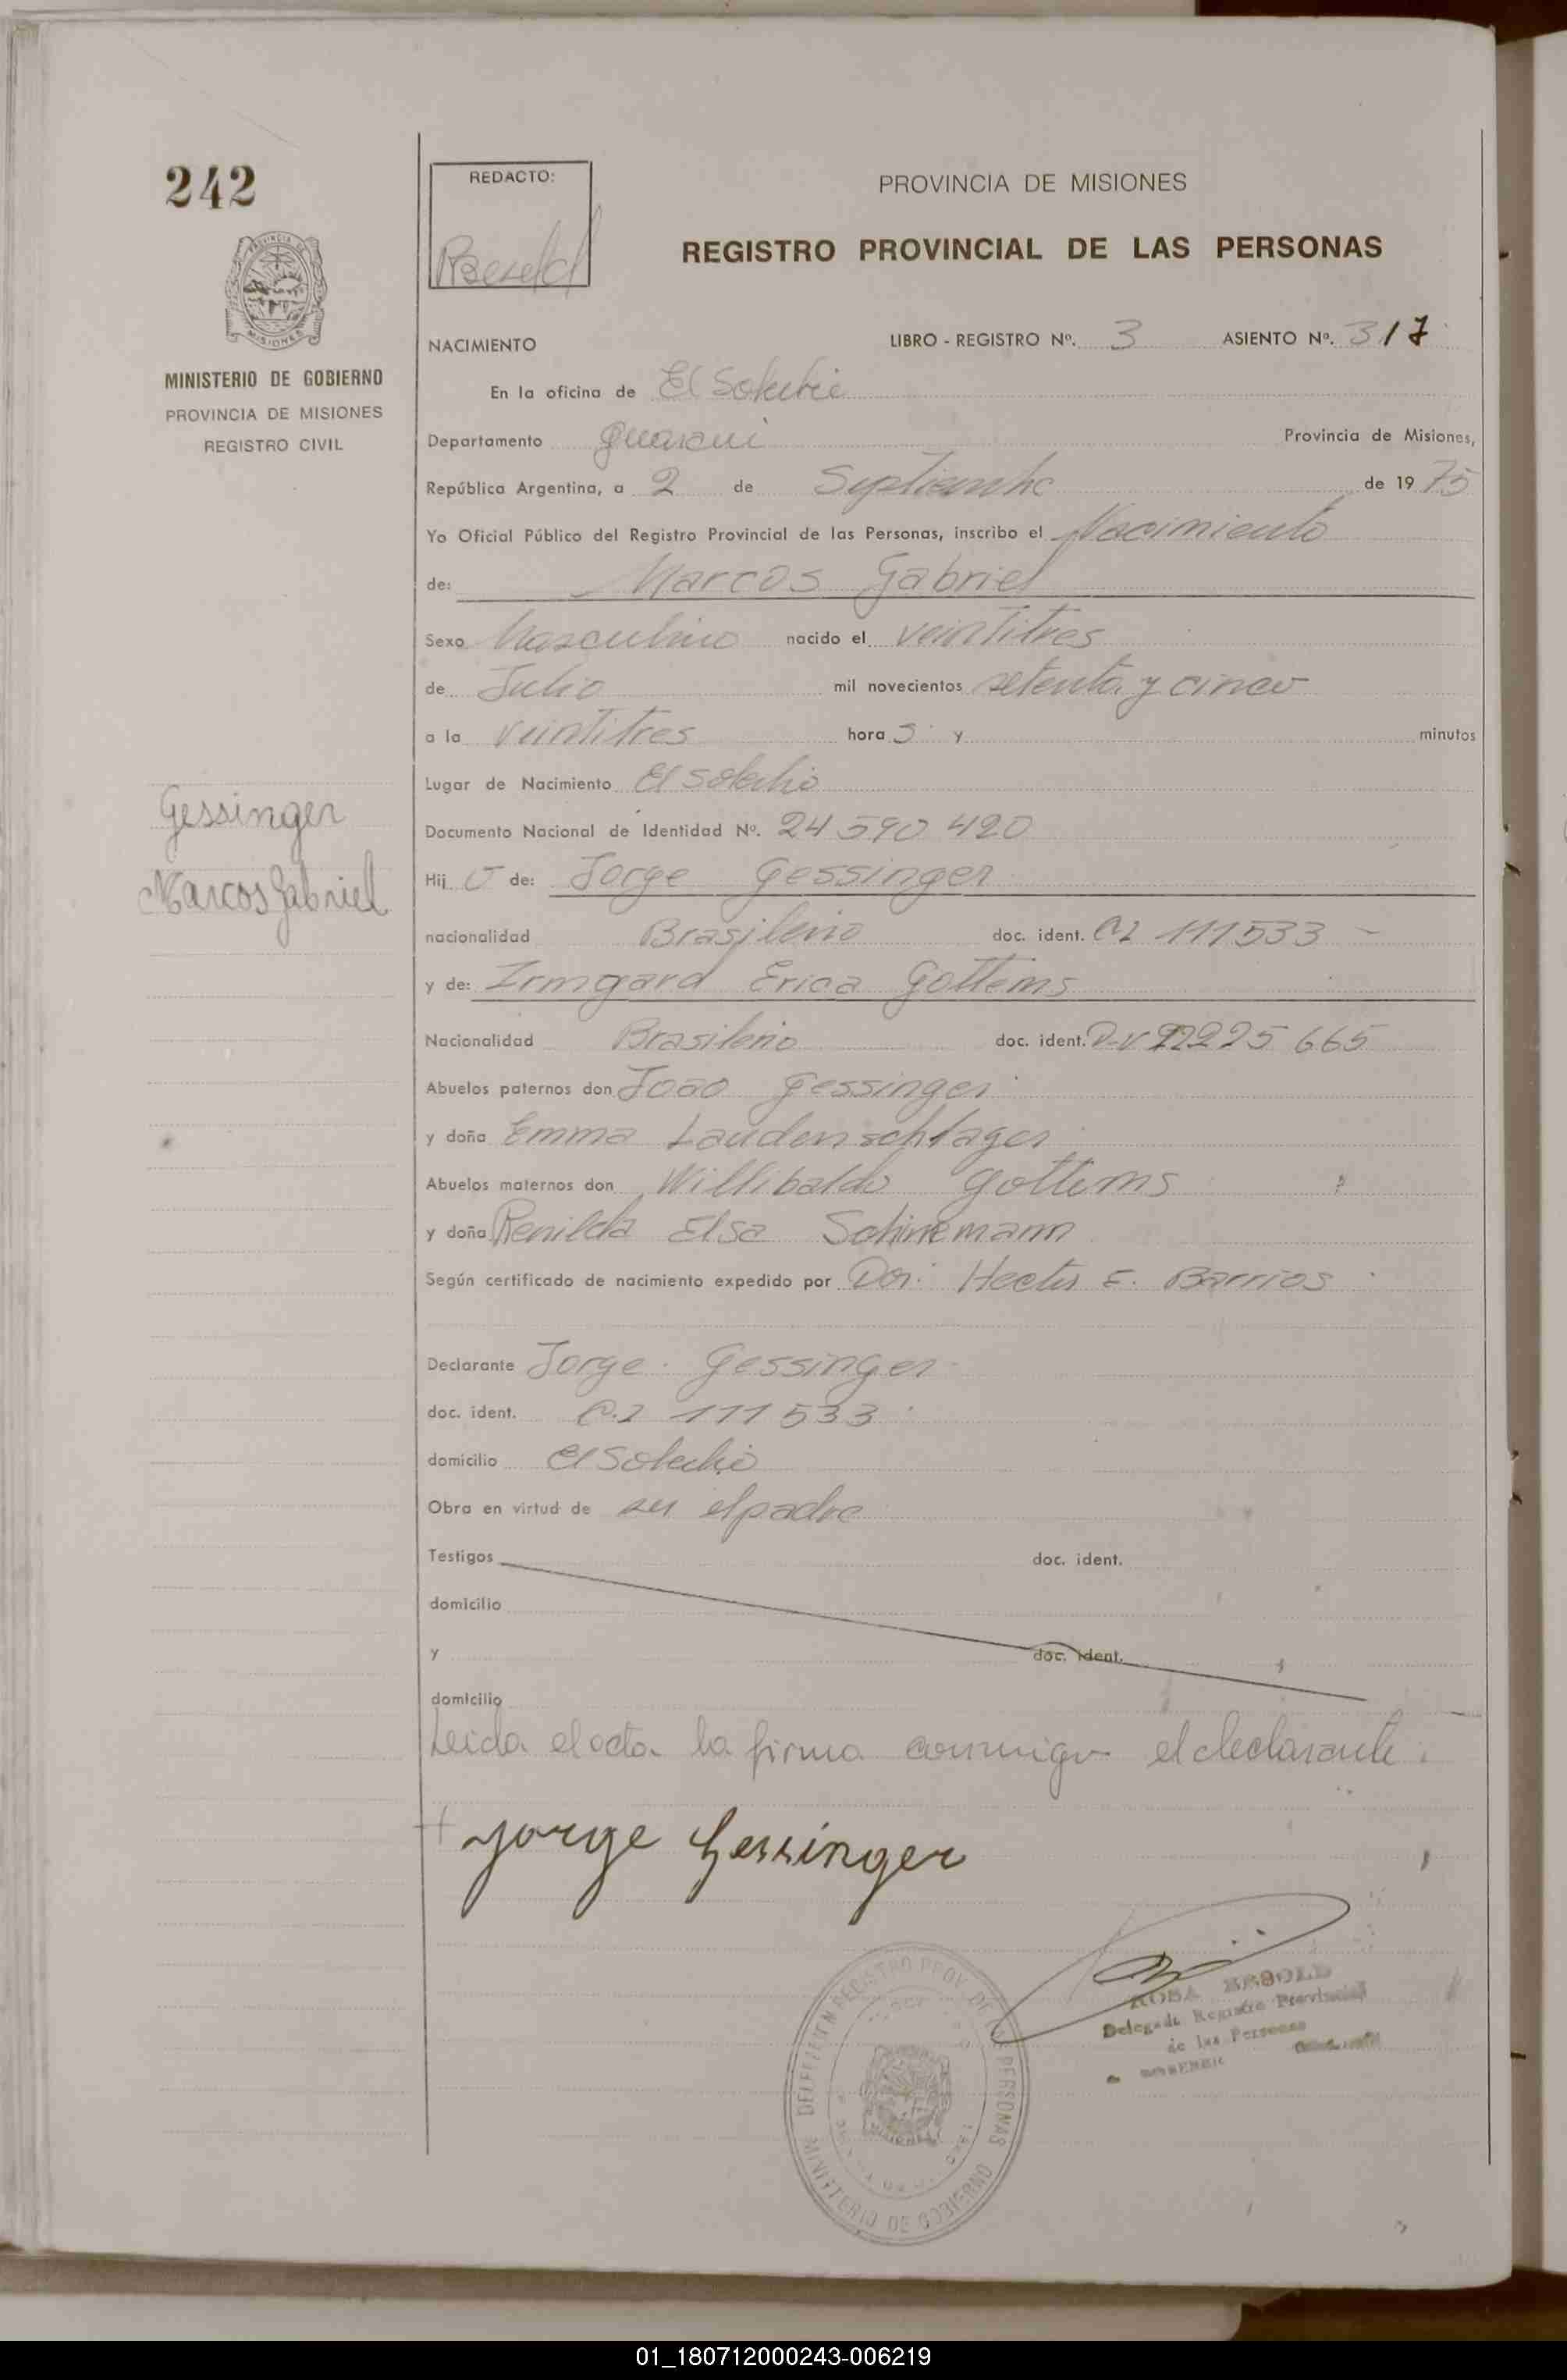 242
REDACTO:
PROVINCIA DE MISIONES
REGISTRO PROVINCIAL DE LAS PERSONAS
PROVINCIA DE
MISIONES
MINISTERIO DE GOBIERNO
PROVINCIA DE MISIONES
REGISTRO CIVIL
NACIMIENTO
LIBRO - REGISTRO Nº. 3 ASIENTO Nº. 317
En la oficina de El Soberbio
Departamento Guarani Provincia de Misiones,
República Argentina, a 2 de Septiembre de 1975
Yo Oficial Público del Registro Provincial de las Personas, inscribo el Nacimiento
de: Marcos Gabriel
Sexo Masculino nacido el veintitres
de Julio mil novecientos setenta y cinco
a la veintitres hora s y minutos
Lugar de Nacimiento El Soberbio
Documento Nacional de Identidad Nº. 24 590 420
Gessinger
Marcos Gabriel
Hij o de: Jorge Gessinger
nacionalidad Brasileño doc. ident. C.I 111533 -
y de: Irmgard Erica Gottems
Nacionalidad Brasileño doc. ident. 225 665
Abuelos paternos don Joao Gessinger
y doña Emma Laudenschlager
Abuelos maternos don Willibaldo Gottems
y doña Renilda Elsa
Según certificado de nacimiento expedido por Dor: Hector E. Barrios
Declarante Jorge Gessinger
doc. ident. C.I 111533
domicilio El Soberbio
Obra en virtud de ser el padre
Testigos doc. ident.
domicilio
y doc. ident.
domicilio
Leida el acta la firma conmigo el declarante.
Jorge Gessinger
REGISTRO PROV. DE LAS PERSONAS
MINISTERIO DE GOBIERNO
ROSA
Delegada Registro Provincial
de las Personas
01_180712000243-006219